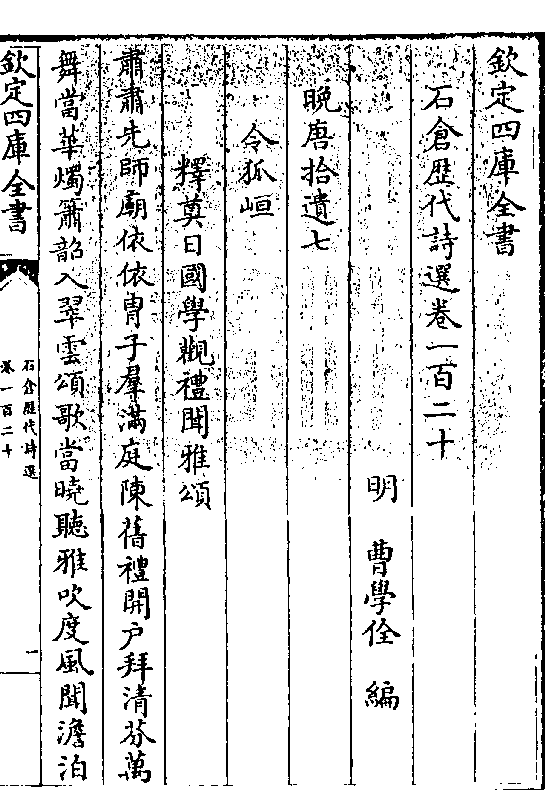 欽定四庫全書
石倉歴代詩選卷一百二十
明　曹學佺　編
晚唐拾遺七
令狐峘
釋奠日國學觀禮聞雅頌
肅肅先師廟依依胄子羣滿庭陳舊禮開户拜清芬萬
舞當華燭簫韶入翠雲頌歌當曉聽雅吹度風聞澹泊
欽定四庫全書
石倉歴代詩選
卷一百二十
一